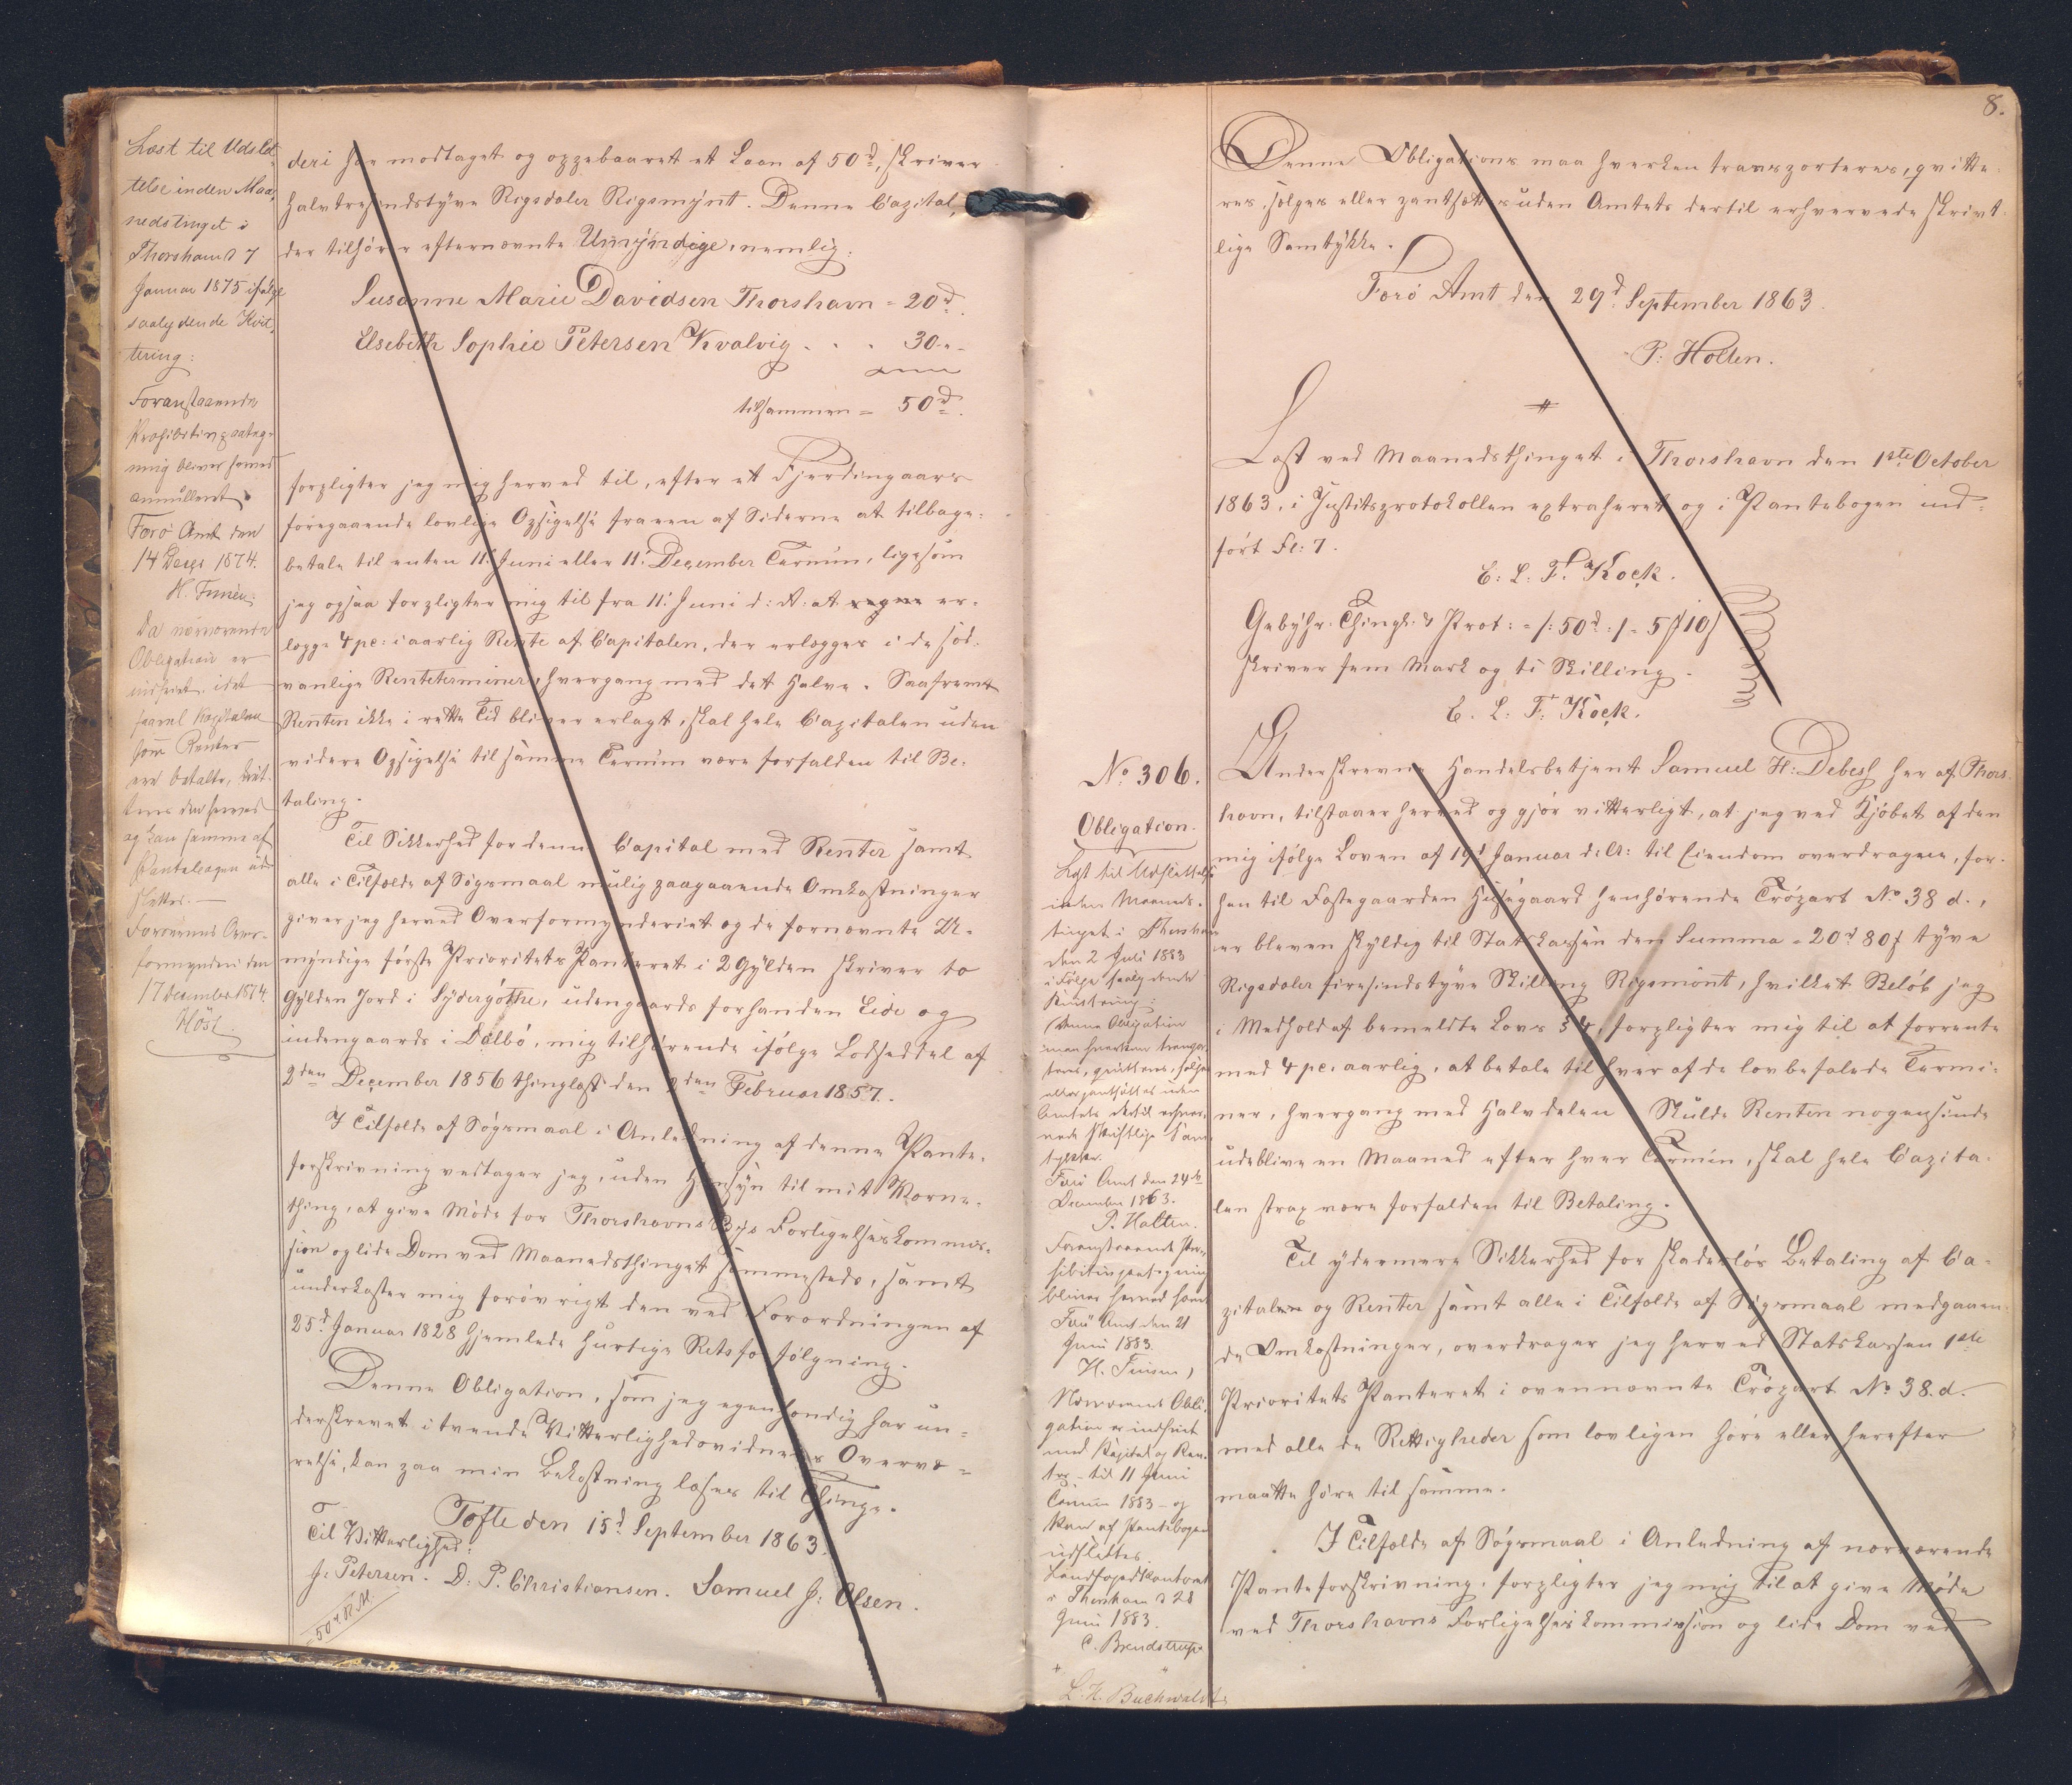 Læst til Udslet
telse inden Maa,
nedstinget i
Thorshavn d 7
Januar 1875 ifølge
saalydende Kvit,
tering:
Foranstaaende
Prohibitivpaateg-
ning bliver herved
annulleret.
Færø Amt den
14 Decbr 1874.
H. Finsen.
Da nærværende
Obligation er
indfriet, idet
saavel Kapitalen
som Renter
ere betalte, kvit-
teres den herved
og kan samme af
Pantebogen ud-
slettes. —
Færøernes Over-
formynderi den
17 December 1874.
Høst.
deri har modtaget og oppebaaret et Laan af 50d, skriver
halvtresindstyve Rigsdaler Rigsmynt. Denne Capital,
der tilhører efternævnte Umyndige, nemlig:
Susanne Marie Davidsen Thorshavn = 20d.
Elsebeth Sophie Petersen Kvalvig . . . 30 " -
tilsammen = 50d.
forpligter jeg mig herved til, efter et Fjerdingaars
foregaaende lovlig Opsigelse fra een af Siderne at tilbage-
betale til enten 11' Juni eller 11' December Termin, ligesom
jeg ogsaa forpligter mig til fra 11' Juni d: A: at er-
lægge 4 pc: i aarlig Rente af Capitalen, der erlægges i de sæd-
vanlige Renteterminer, hvergang med det Halve. Saafremt
Renten ikke i rette Tid bliver erlagt, skal hele Capitalen uden
videre Opsigelse til samme Termin være forfalden til Be-
taling.
Til Sikkerhed for denne Capital med Renter samt
alle i Tilfælde af Søgsmaal mulig paagaaende Omkostninger
giver jeg herved Overformynderiet og de fornævnte U-
myndige første Prioritets Panteret i 2 Gylden skriver to
Gylden Jord i Sydergøthe, udengaards forhanden Eide og
indengaards i Dalbø, mig tilhørende ifølge Lodseddel af
2den December 1856 thinglæst den 2den Februar 1857.
I Tilfælde af Søgsmaal i Anledning af denne Pante-
forskrivning vedtager jeg, uden Hensyn til mit Værne-
thing, at give Møde for Thorshavns Byes Forligelseskommis-
sion og lide Dom ved Maanedsthinget sammesteds, samt
underkaster mig forøvrigt den ved Forordningen af
25d Januar 1828 hjemlede hurtige Retsforfølgning.
Denne Obligation, som jeg egenhændig har un-
derskrevet i tvende Vitterlighedsvidners Overvæ-
relse, kan paa min Bekostning læses til Thinge.
Tofte den 15d September 1863.
Til Vitterlighed:
J. Petersen. D: P. Christiansen. Samuel J: Olsen.
= 50d R.M.
8.
Denne Obligations maa hverken transporteres, qvitte-
res, sælges eller pantsættes uden Amtets dertil erhvervede skrivt-
lige Samtykke.
Færø Amt den 29d September 1863.
P: Holten.
#
Læst ved Maanedsthinget i Thorshavn den 1ste October
1863, i Justitsprotokollen extraheret og i Pantebogen ind-
ført Fl: 7.
E: L: F. Kock.
Gebyhr. Thingl. & Prot: = /: 50d :/ = 5 10
skriver fem Mark og ti Skilling.
E. L: F: Kock.
No 306.
Obligation.
Læst til Udslettelse
inden Maaneds-
tinget i Thorshavn
den 2 Juli 1883
ifølge saalydende
Kvittering:
(Denne Obligation
maa hverken transpor-
teres, qvitteres, sælges
eller pantsættes uden
Amtets dertil erhver-
vede skriftlige Sam-
tykke.
Færø Amt den 24de
December 1863.
P. Holten.
Foranstaaende Pro-
hibitivpaategning
bliver herved hævet
Færø Amt den 21
Juni 1883.
H. Finsen)
Nærværende Obli-
gation er indfriet
med Kapital og Ren-
ter - til 11 Juni
Termin 1883 - og
kan af Pantebogen
udslettes.
Landfogedkontoret
i Thorshavn d 28
Juni 1883.
C. Brendstrup
L. H. Buchwaldt
Underskrevne Handelsbetjent Samuel H: Debess her af Thors-
havn, tilstaaer herved og gjør vitterligt, at jeg ved Kjøbet af den
mig ifølge Loven af 19d Januar d: A: til Eiendom overdragne, for-
hen til Fæstegaarden Husegaard henhørende Trøpart No 38 d.,
er bleven skyldig til Statskassen den Summa = 20d 80s tyve
Rigsdaler firesindstyve Skilling Rigsmønt, hvilket Beløb jeg
i Medhold af bemeldte Lovs § 4, forpligter mig til at forrente
med 4 pc: aarlig, at betale til hver af de lovbefalede Termi-
ner, hvergang med Halvdelen Skulde Renten nogensinde
udeblive en Maaned efter hver Termin, skal hele Capita-
len strax være forfalden til Betaling.
Til ydermere Sikkerhed for skadesløs Betaling af Ca-
pitalen og Renter samt alle i Tilfælde af Søgsmaal medgaaen-
de Omkostninger, overdrager jeg herved Statskassen 1ste
Prioritets Panteret i ovennævnte Trøpart No 38. d.
med alle de Rettigheder som lovligen høre eller herefter
maatte høre til samme.
I Tilfælde af Søgsmaal i Anledning af nærværende
Panteforskrivning, forpligter jeg mig til at give Møde
ved Thorshavns Forligelseskommission og lide Dom ved